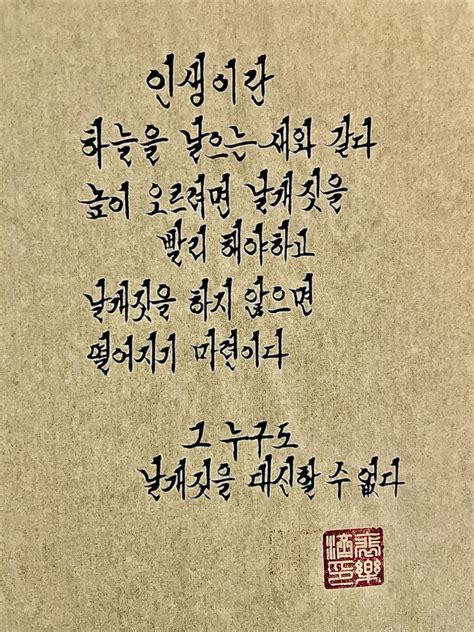 인생이란
하늘을 날으는 새와 같다
높이 오르려면 날개짓을
빨리 해야하고
날개짓을 하지 않으면
떨어지기 마련이다
그 누구도
날개짓을 대신할 수 없다